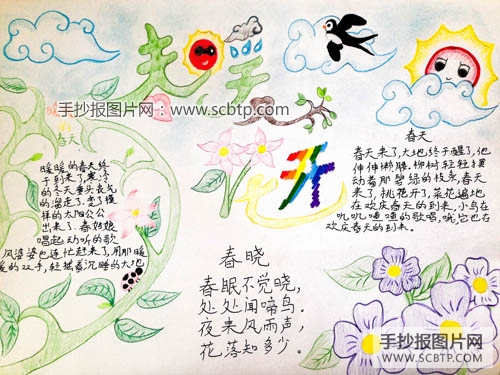 手抄报图片网:www.scbtp.com
暖
春天
暖暖的春天终
于到来了,寒冷
的冬天垂头丧气
的溜走了,红了模
样的太阳公公
出来了,春姑娘
唱起动听的歌
风婆婆也连忙赶来了,用那暖
暖的双手,轻摇着沉睡的大地,
春天
春天来了,大地,终于醒了,他
伸伸懒腰,柳树轻轻摆
动着那碧绿的枝条,春天
来了,桃花开了,菜花遍地,
在欢庆春天的到来,小鸟在
叽叽喳喳的歌唱,哦,它也在
欢庆春天的到来。
春晓
春眠不觉晓,
处处闻啼鸟。
夜来风雨声,
花落知多少。
手抄报图片网
WWW.SCBTP.COM